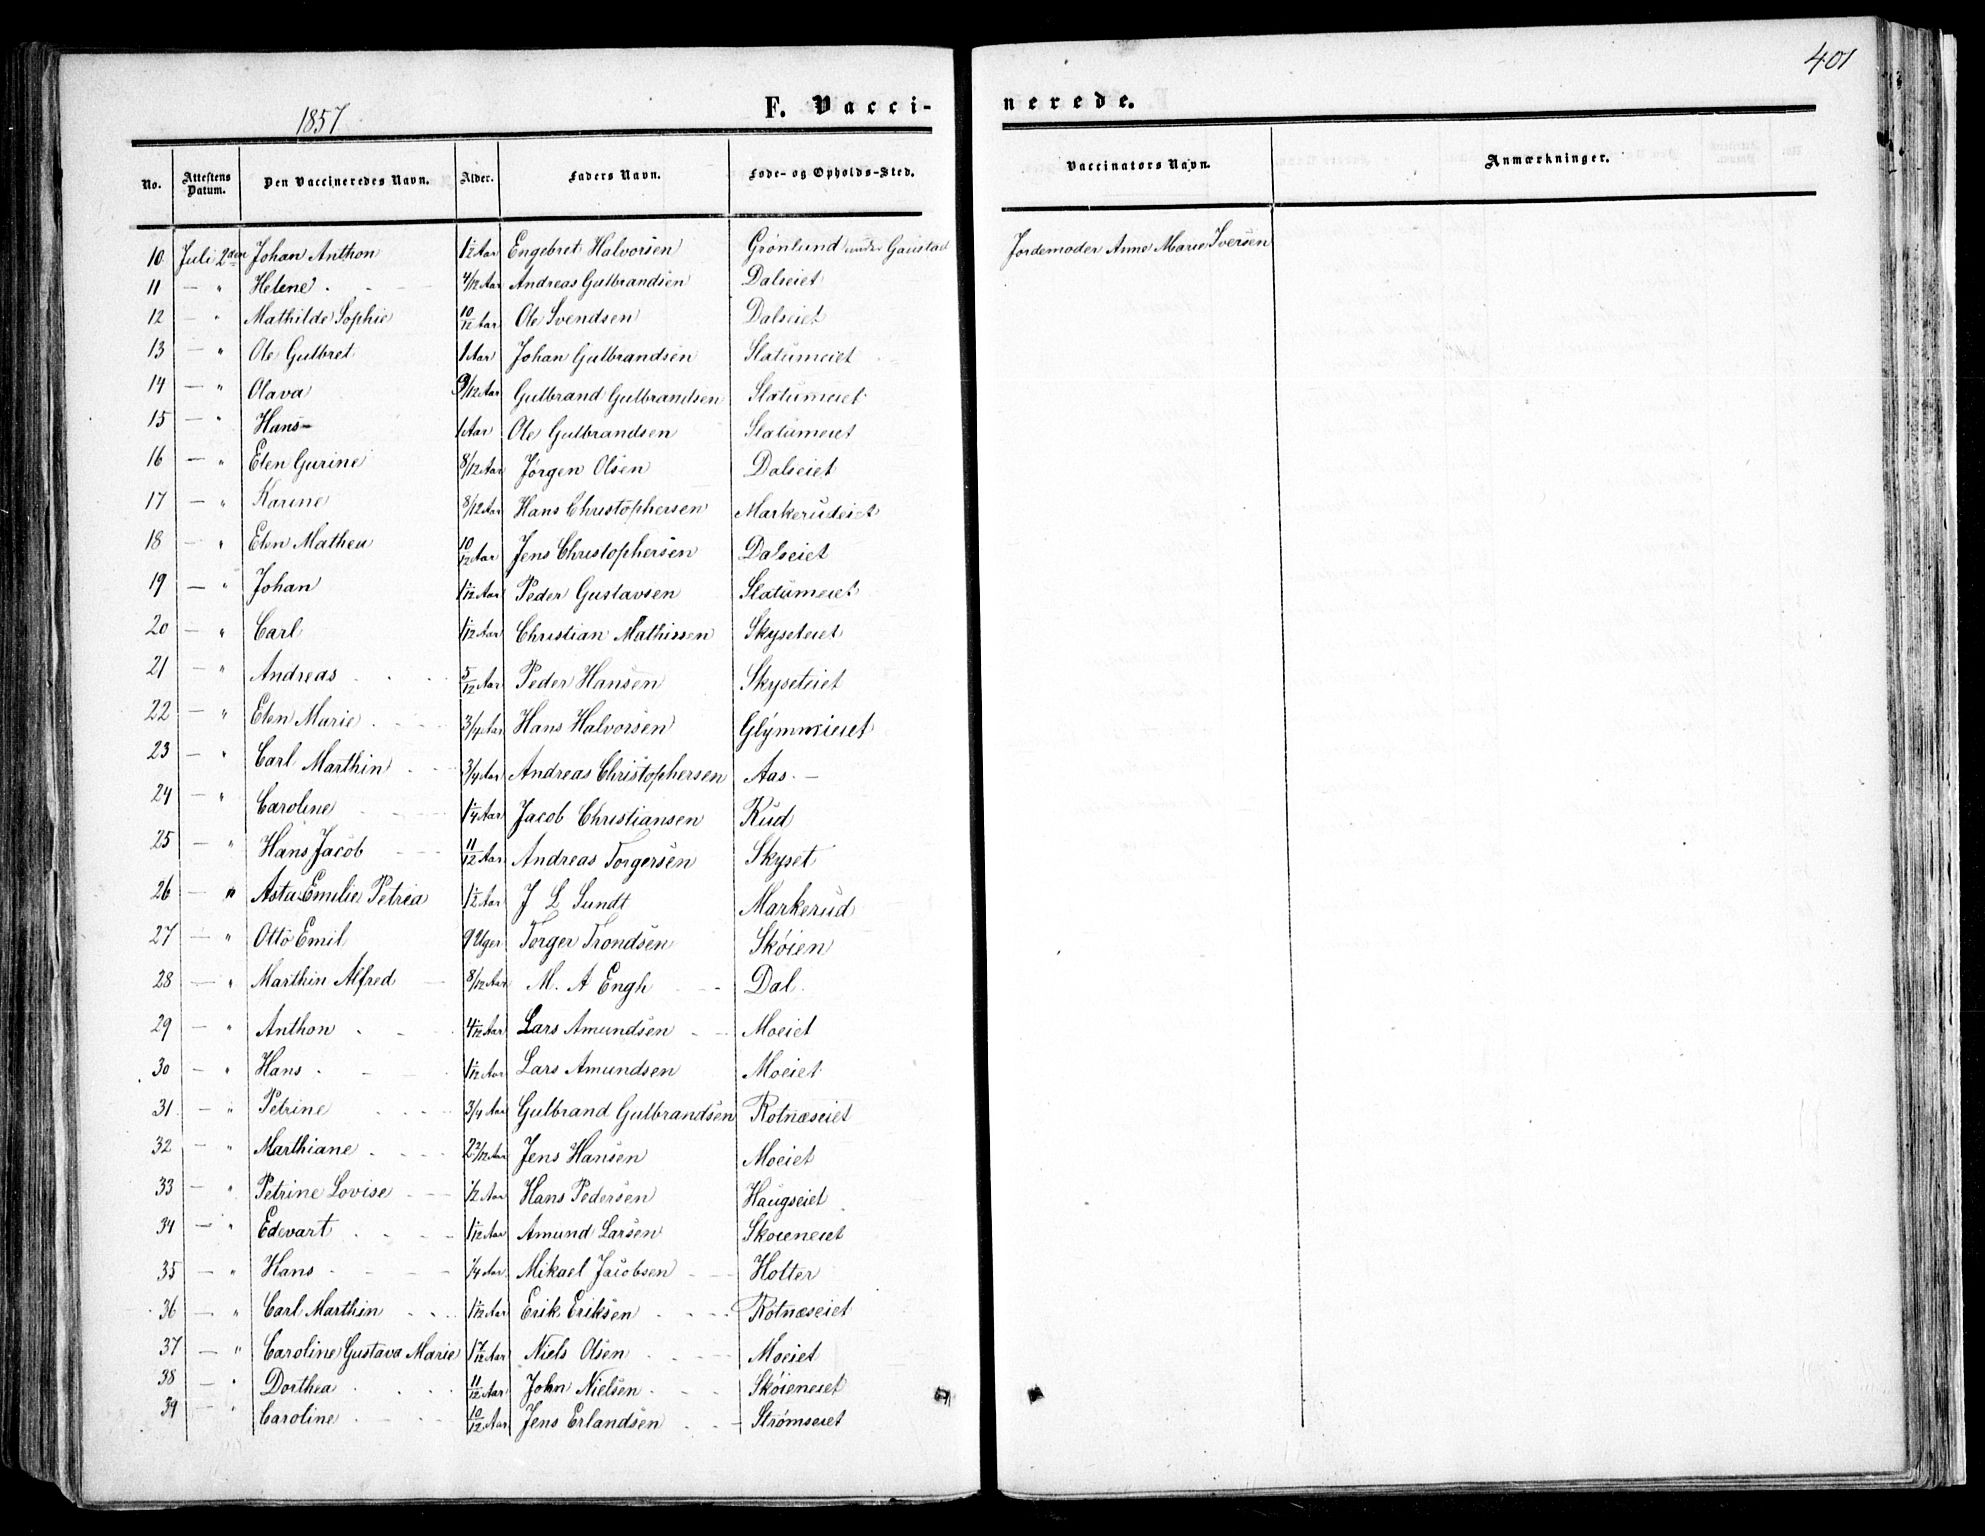 401
1857
F. Vacci-
nerede.
No. Attestens Datum. Den Vaccineredes Navn. Alder. Faders Navn. Føde- og Opholds-Sted. Vaccinators Navn. Anmærkninger.
10 Juli 2den Johan Anthon 1½ Aar Engebret Halvorsen Grønlund under Gaustad Jordemoder Anne Marie Iversen
11 — " Helene 4/12 Aar Andreas Gulbrandsen Dalseiet
12 — " Mathilde Sophie 10/12 Aar Ole Svendsen Dalseiet
13 — " Ole Gulbret 1 Aar Johan Gulbrandsen Slatumeiet
14 — " Olava 9/12 Aar Gulbrand Gulbrandsen Slatumeiet
15 — " Hans 1 Aar Ole Gulbrandsen Slatumeiet
16 — " Elen Gurine 8/12 Aar Jørgen Olsen Dalseiet
17 — " Karine 8/12 Aar Hans Christophersen Markerudeiet
18 — " Elen Mathea 10/12 Aar Jens Christophersen Dalseiet
19 — " Johan 1 1/12 Aar Peder Gustavsen Slatumeiet
20 — " Carl 1 1/12 Aar Christian Mathissen Skyseteiet
21 — " Andreas 5/12 Aar Peder Hansen Skyseteiet
22 — " Elen Marie 3/4 Aar Hans Halvorsen Glymmeiet
23 — " Carl Marthin 3/4 Aar Andreas Christophersen Aas —
24 — " Caroline 1¼ Aar Jacob Christiansen Rud
25 " Hans Jacob 11/12 Aar Andreas Torgersen Skyset
26 — " Asta Emilie Petrea 1½ Aar J L Sundt Markerud
27 — " Otto Emil 9 Uger Torger Trondsen Skøien
28 — " Marthin Alfred 8/12 Aar M. A Engh Dal.
29 — " Anthon 4/12 Aar Lars Amundsen Moeiet
30 — " Hans 1 1/12 Aar Lars Amundsen Moeiet
31 — " Petrine 3/4 Aar Gulbrand Gulbrandsen Rotnæseiet
32 — " Marthiane 2 2/12 Aar Jens Hansen Moeiet
33 — " Petrine Lovise ½ Aar Hans Pedersen Haugseiet
34 — " Edevart 1 1/12 Aar Amund Larsen Skoieneiet
35 — " Hans ¼ Aar Mikael Jacobsen Holter
36 — " Carl Marthin 1 1/12 Aar Erik Eriksen Rotnæseiet
37 — " Caroline Gustava Marie 1 7/12 Aar Niels Olsen Moeiet
38 — " Dorthea 11/12 Aar John Nielsen Skøieneiet
39 — " Caroline 10/12 Aar Jens Erlandsen Strømseiet